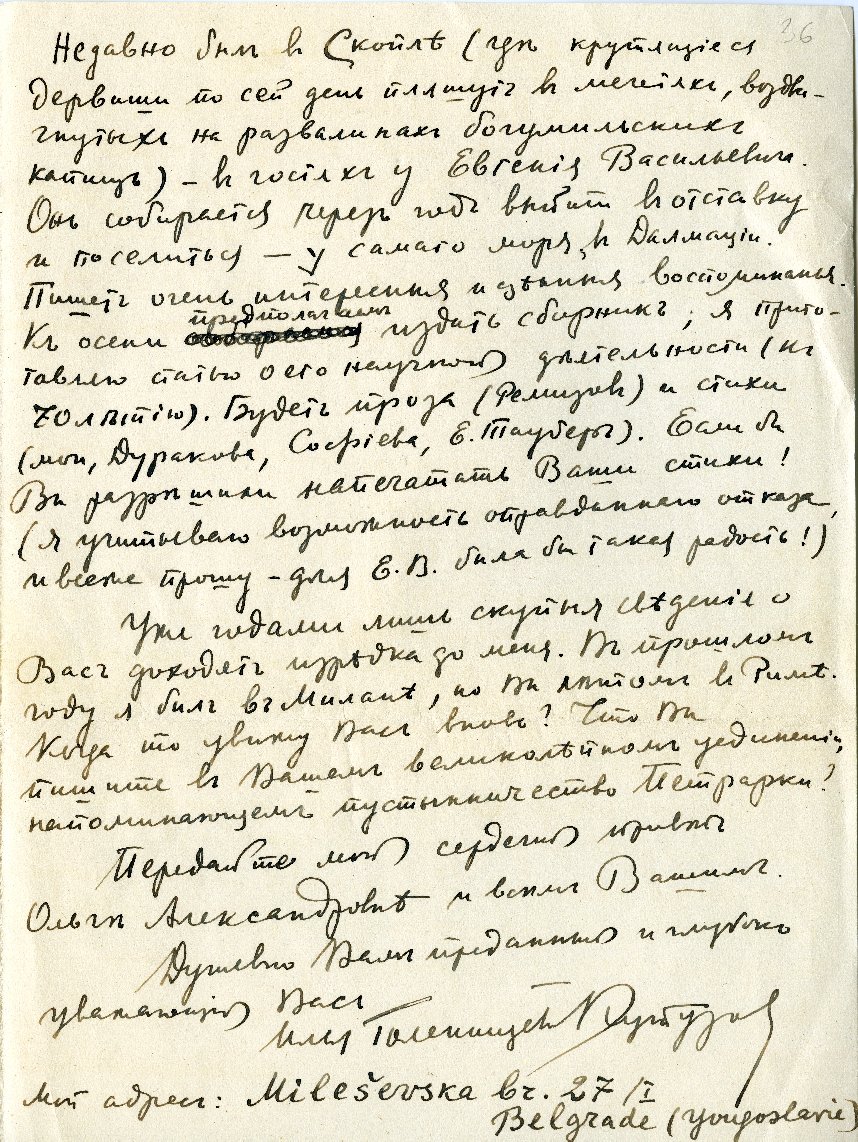 36
Недавно былъ въ Скоплѣ (гдѣ крутящіеся
дервиши по сей день пляшутъ въ мечетяхъ, воздви-
гнутыхъ на развалинахъ богумильскихъ
капищъ) – въ гостяхъ у Евгенія Васильевича.
Онъ собирается черезъ годъ выйти въ отставку
и поселиться – у самаго моря, въ Далмаціи.
Пишетъ очень интересныя и цѣнныя воспоминанья.
Къ осени предполагаемъ издать сборникъ; я приго-
тавляю статью о его научной дѣятельности (къ
70лѣтію). Будетъ проза (Ремизовъ) и стихи
(мои, Дуракова, Софіева, Е. Тауберъ). Если бы
Вы разрѣшили напечатать Ваши стихи!
(я учитываю возможность оправданнаго отказа,
и все же прошу – для Е. В. была бы такая радость!)
Уже годами лишь скупыя свѣденія о
Васъ доходятъ изрѣдка до меня. Въ прошломъ
году я былъ въ Миланѣ, но Вы лѣтомъ въ Римѣ.
Когда то увижу Васъ вновь? Что Вы
пишите въ Вашемъ великолѣпномъ уединеніи,
напоминающемъ пустынничество Петрарки?
Передайте мой сердечный привѣтъ
Ольгѣ Александровнѣ и всѣмъ Вашимъ.
Душевно Вамъ преданный и глубоко
уважающій Васъ
Илья Голенищевъ Кутузовъ
Мой адресъ: Mileševska br. 27/I
Belgrade (Yougoslavie)